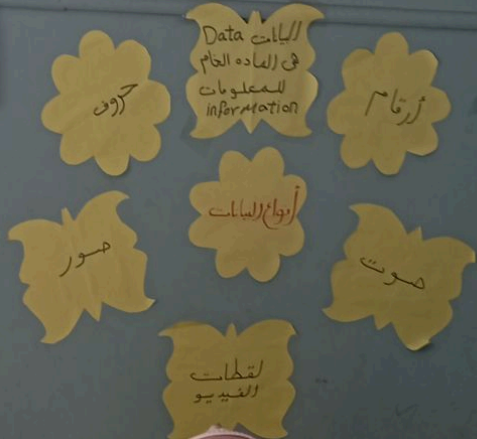 البيانات Data
هى الماده الخام
للمعلومات
information
أرقام
حروف
أنواع البيانات
صوت
صور
لقطات
الفيديو